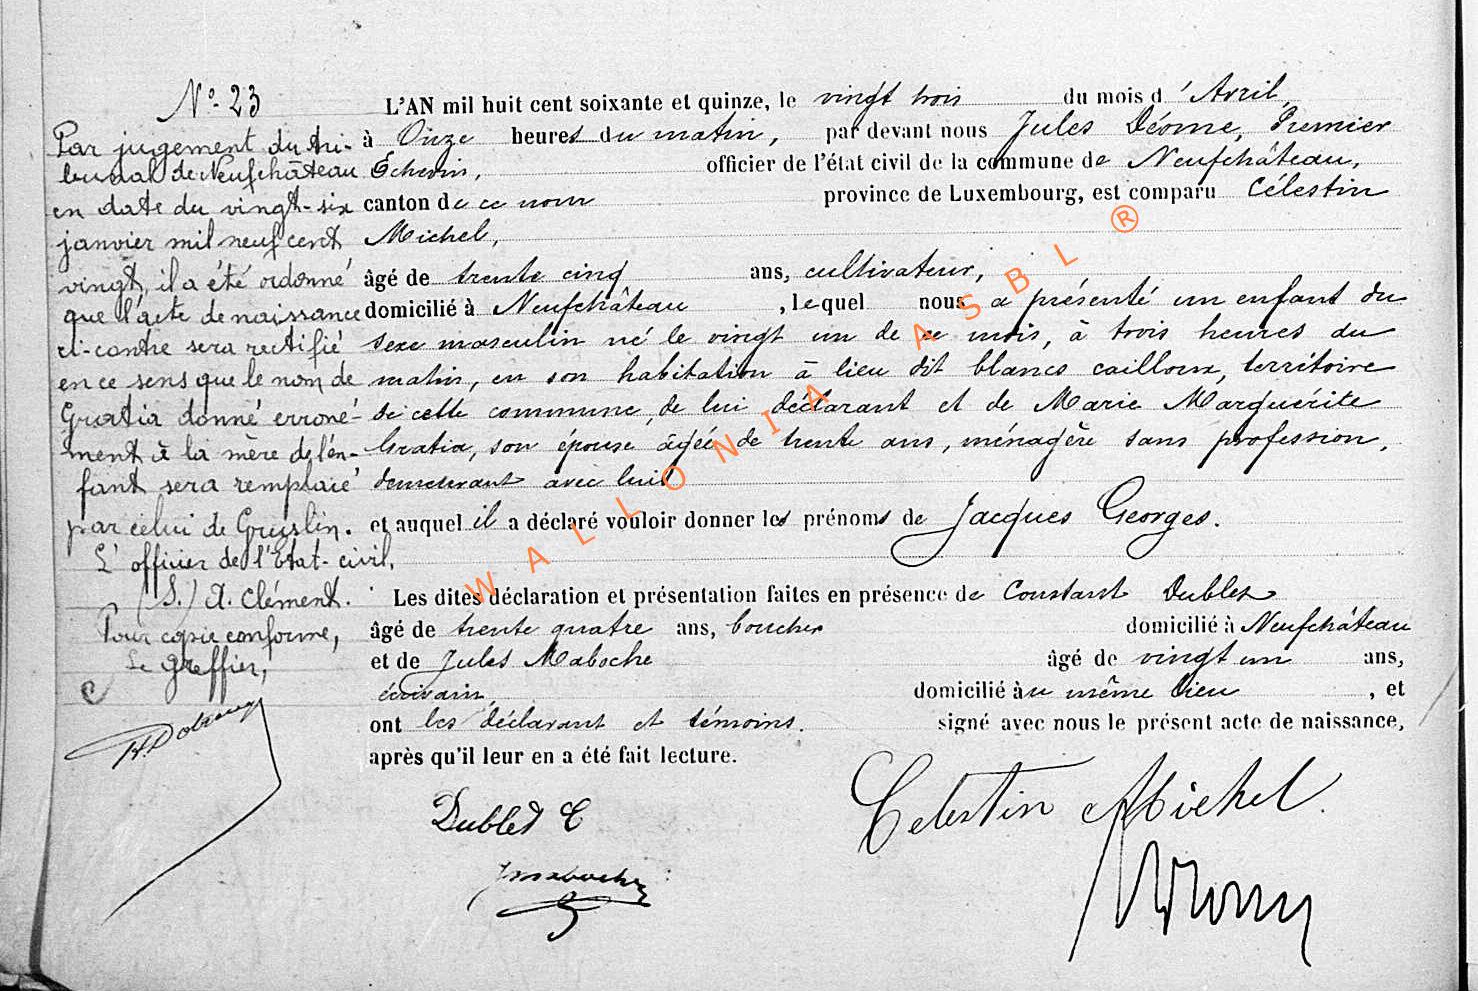 N° 23
Par jugement du tri-
bunal de Neufchâteau
en date du vingt-six
janvier mil neuf cent
vingt, il a été ordonné
que l'acte de naissance
ci-contre sera rectifié
en ce sens que le nom de
Gratia donné erroné-
ment à la mère de l'en-
fant sera remplacé
par celui de Gruslin.
L'officier de l'Etat-civil,
(S.) A. Clément.
Pour copie conforme,
Le Greffier,
L'AN mil huit cent soixante et quinze, le vingt trois du mois d'Avril
à Onze heures du matin, par devant nous Jules Déome, Premier
Echevin, officier de l'état civil de la commune de Neufchâteau,
canton de ce nom province de Luxembourg, est comparu Célestin
Michel,
âgé de trente cinq ans, cultivateur,
domicilié à Neufchâteau, lequel nous a présenté un enfant du
sexe masculin né le vingt un de ce mois, à trois heures du
matin, en son habitation à lieu dit blancs cailloux, territoire
de cette commune, de lui déclarant et de Marie Marguérite
Gratia, son épouse, âgée de trente ans, ménagère sans profession,
demeurant avec lui
et auquel il a déclaré vouloir donner les prénoms de Jacques Georges.
Les dites déclaration et présentation faites en présence de Constant Dublet
âgé de trente quatre ans, boucher domicilié à Neufchâteau
et de Jules Maboche âgé de vingt un ans,
écrivain, domicilié au même lieu, et
ont les déclarant et témoins. signé avec nous le présent acte de naissance,
après qu'il leur en a été fait lecture.
Dublet C
Celestin Michel
JMaboche
WALLONIA ASBL ®